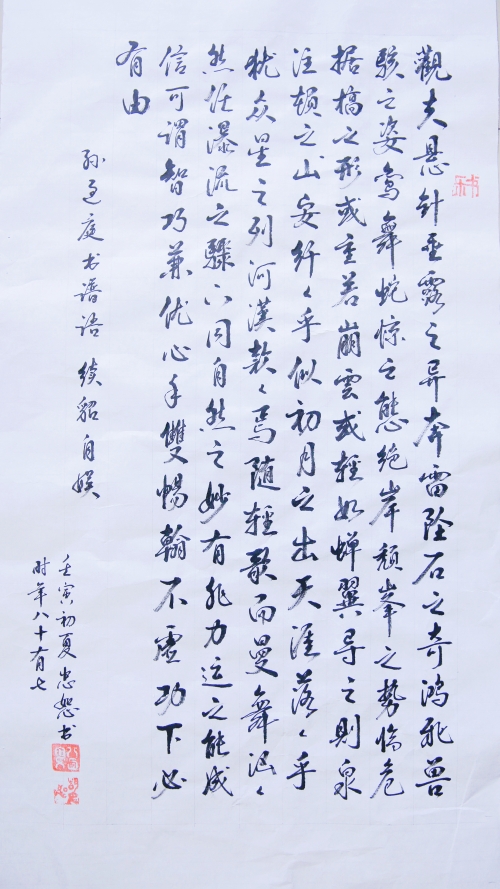 觀夫悬针垂露之异奔雷坠石之奇鸿飛兽
骇之姿鸾舞蛇惊之態绝岸颓峯之势临危
据槁之形或重若崩雲或轻如蝉翼导之則泉
注顿之山安纤々乎似初月之出天涯落々乎
犹众星之列河漢款々焉随轻歌而曼舞滔々
然任瀑流之驟下同自然之妙有非力运之能成
信可谓智巧兼优心手雙畅翰不虚功下必
有由
孙过庭书谱语 续貂自娱
壬寅初夏忠恕书
时年八十有七